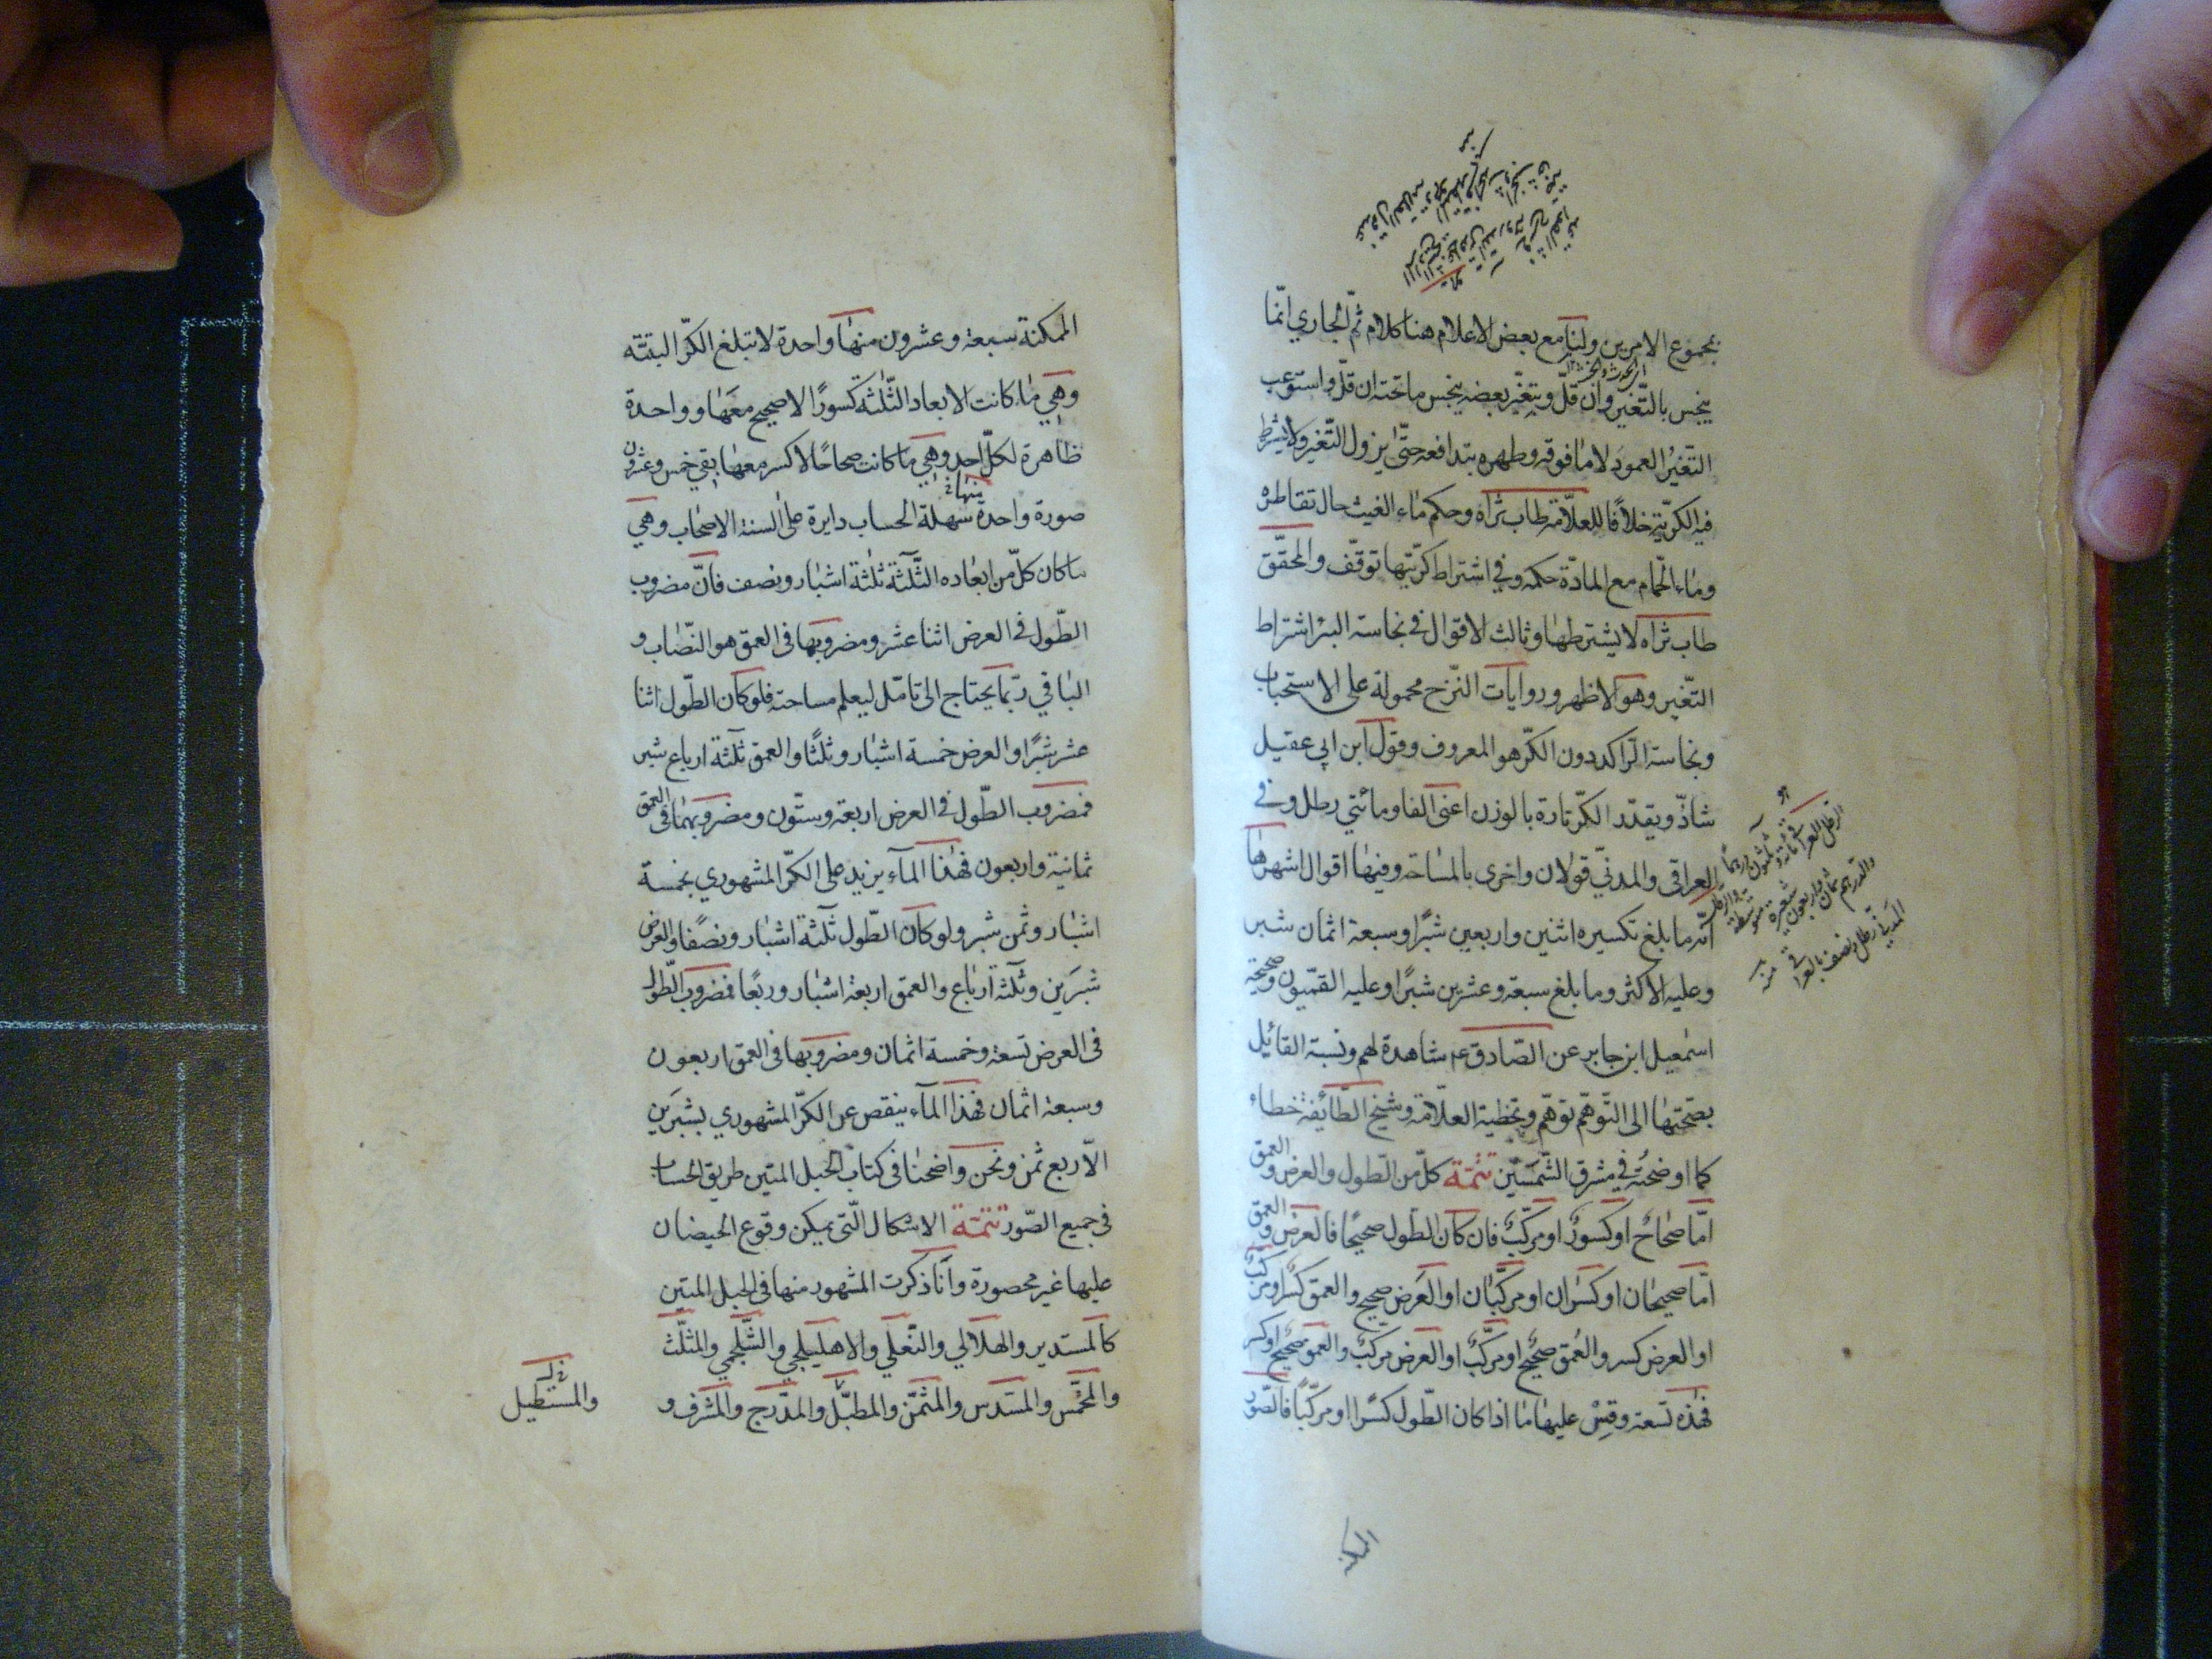 بمجموع الامرين ولنا مع بعض الاعلام هنا كلام ثمّ الجاري انّما
ينجس بالتّغيّر وان قلّ وبتغيّر بعضه ينجس ما تحته ان قلّ واستوعب
التغيّر العمود لا ما فوقه وطهره بتدافعه حتّى يزول التّغيّر ولا يشترط
فيه الكرّيّة خلافًا للعلّامة طاب ثراه وحكم ماء الغيث حال تقاطره
وماء الحمّام مع المادّة حكمه وفي اشتراط كرّيّتها توقّف والمحقّق
طاب ثراه لا يشترطها وثالث الاقوال في نجاسة البئر اشتراط
التّغيّر وهو الاظهر وروايات النّزح محمولة على الاستحباب
ونجاسة الرّاكد دون الكرّ هو المعروف وقول ابن ابي عقيل
شاذّ ويقدّر الكرّ تارة بالوزن اعنى الفا ومائتي رطل وفي
العراقى والمدنيّ قولان واخرى بالمساحة وفيها اقوال اشهرها
انّه ما بلغ تكسيره اثنين واربعين شبرًا وسبعة اثمان شبر
وعليه الاكثر وما بلغ سبعة وعشرين شبرًا وعليه القمّيون وصحيحة
اسمعيل ابن جابر عن الصّادق ع شاهدة لهم ونسبة القائل
بصحّتها الى التّوهّم توهّم وتخطية العلّامة وشيخ الطّائفة خطاء
كما اوضحته في مشرق الشّمسين تتمّة كلّ من الطول والعرض والعمق
امّا صحاحٌ او كسورٌ او مركّبٌ فان كان الطول صحيحًا فالعرض والعمق
امّا صحيحان او كسران او مركّبان او العرض صحيح والعمق كسر او مركّبٌ
او العرض كسر والعمق صحيح او مركّبٌ او العرض مركّبٌ والعمق صحيح او كسر
فهذه تسعة وقِسْ عليها ما اذا كان الطّول كسرًا او مركّبًا فالصّور
الرطل العراقي مائة وثلثون درهمًا
والدرهم ثمان واربعون شعيرة متوسطة والرطل
المدني رطل ونصف بالعراقي منه
الممكنة سبعة وعشرون منها واحدة لا تبلغ الكرّ البتّة
وهي ما كانت الابعاد الثّلثة كسورًا لا صحيح معها وواحدة
ظاهرة لكلّ احد وهي ما كانت صحاحًا لا كسر معها بقي خمس وعشرون
صورة واحدة منها سهلة الحساب دايرة على السنة الاصحاب وهي
ما كان كلّ من ابعاده الثّلثة ثلثة اشبار ونصف فانّ مضروب
الطّول في العرض اثنا عشر ومضروبها فى العمق هو النّصاب و
الباقي ربّما يحتاج الى تامّل ليعلم مساحته فلو كان الطّول اثنا
عشر شبرًا والعرض خمسة اشبار وثلثًا والعمق ثلثة ارباع شبر
فمضروب الطّول في العرض اربعة وستّون ومضروبهما فى العمق
ثمانية واربعون فهذا المآء يزيد على الكرّ المشهوري بخمسة
اشبار وثمن شبر ولو كان الطّول ثلثة اشبار ونصفًا والعرض
شبرَين وثلثة ارباع والعمق اربعة اشبار وربعًا فمضروب الطّول
فى العرض تسعة وخمسة اثمان ومضروبها فى العمق اربعون
وسبعة اثمان فهذا المآء ينقص عن الكرّ المشهوري بشبرَين
الّا ربع ثمن ونحن واضحنا فى كتاب الحبل المتين طريق الحساب
في جميع الصّور تتمّة الاشكال الّتى يمكن وقوع الحيضان
عليها غير محصورة وانا ذكرت المشهور منها فى الحبل المتين
كالمستدير والهلالي والنّعلي والاهليلجي والشّلجمي والمثلّث
والمخمّس والمسدّس والمثمّن والمطبّل والمدرّج والمشرف و
والمستطيل